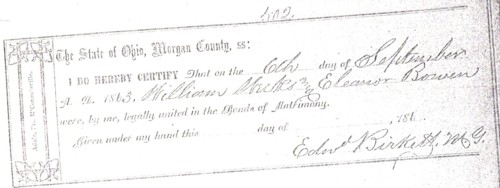 The State of Ohio, Morgan County, ss:
I DO HEREBY CERTIFY That on the 6th day of September
A. D. 1863, William & Eleanor Bowen
were, by me, legally united in the Bonds of Matrimony.
Given under my hand this day of , 186
Edwd Birkett, M.G.